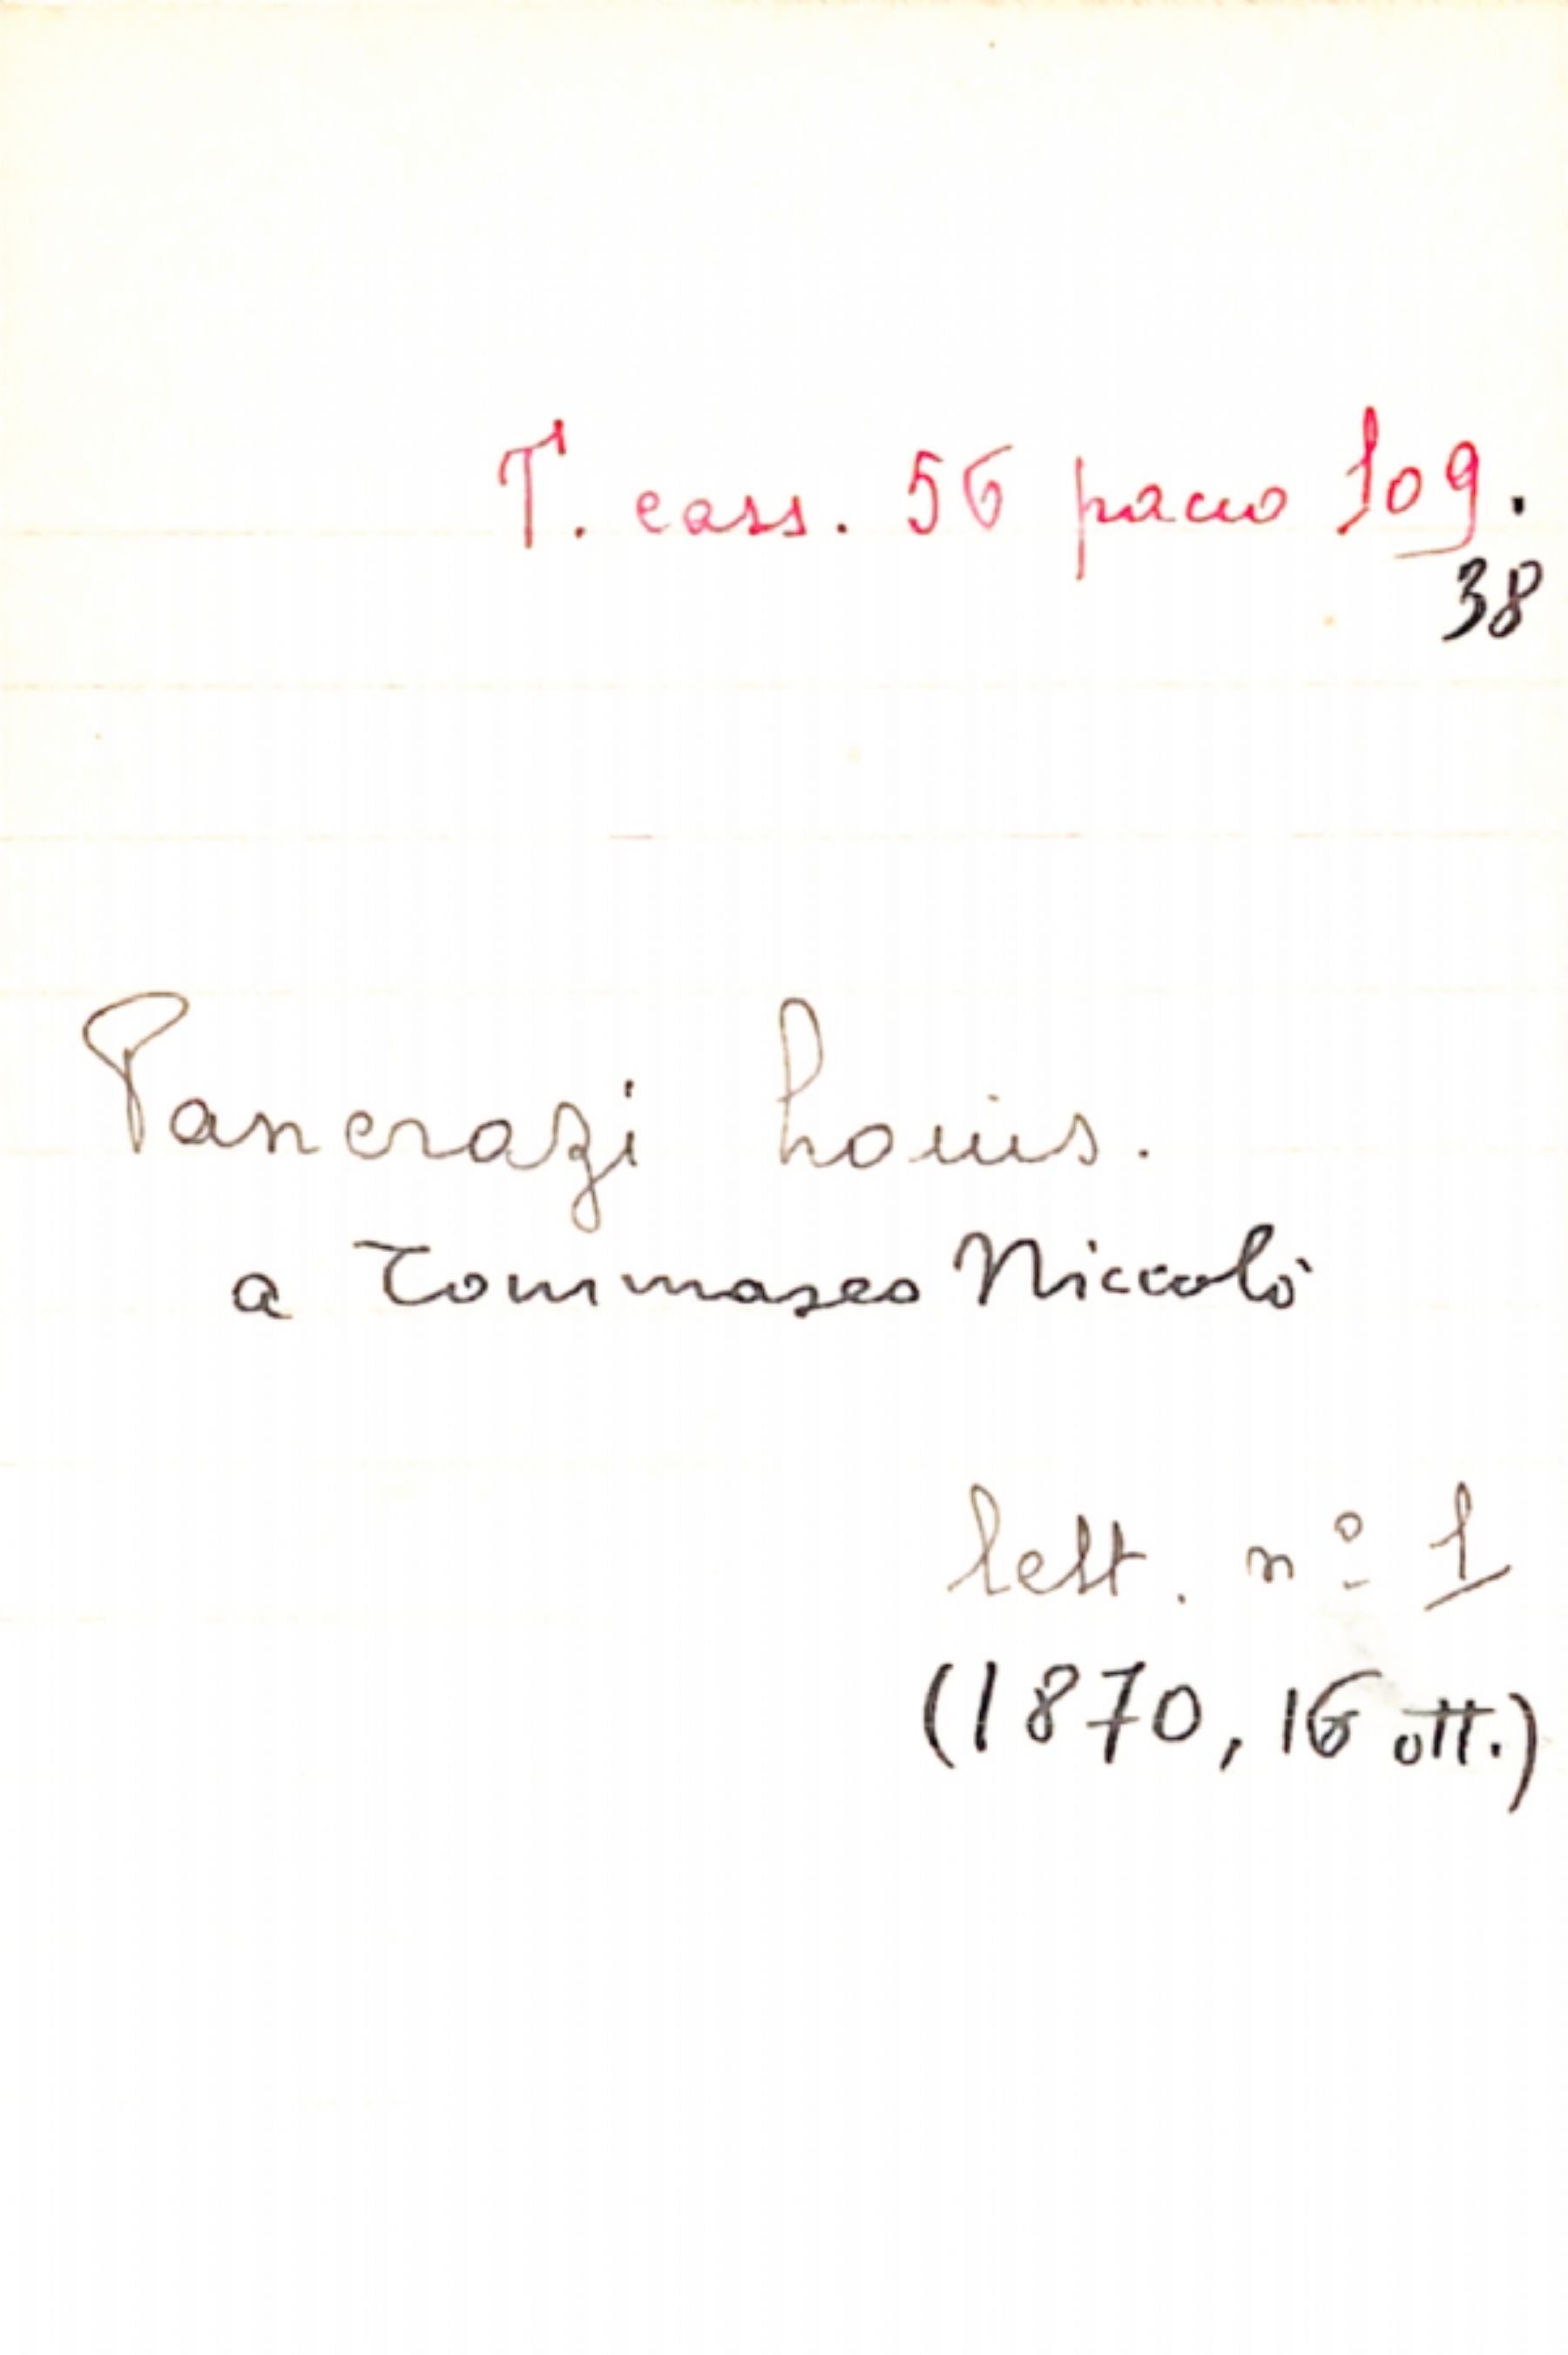 T. cass. 56 pacco 109.
38
Pancrazi Louis.
a Tommaseo Niccolò
lett. nº 1
(1870, 16 ott.)